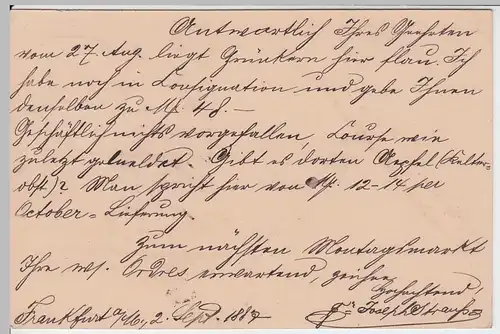 Antwortlich Ihres Geehrten
vom 27 Aug. liegt Grünkern hier flau. Ich
habe noch in Consignation und gebe Ihnen
denselben zu M. 48.–
Geschäftlich nichts vorgefallen, Course wie
zuletzt gemeldet. Gibt es dorten Aepfel (Kelter=
obst)? Man spricht hier von M. 12-14 per
October=Lieferung.
Zum nächsten Montagsmarkt
Ihre w. Ordres erwartend, zeichne
Hochachtend
Frankfurt a/M., 2. Sept. 1887 Joseph Strauss